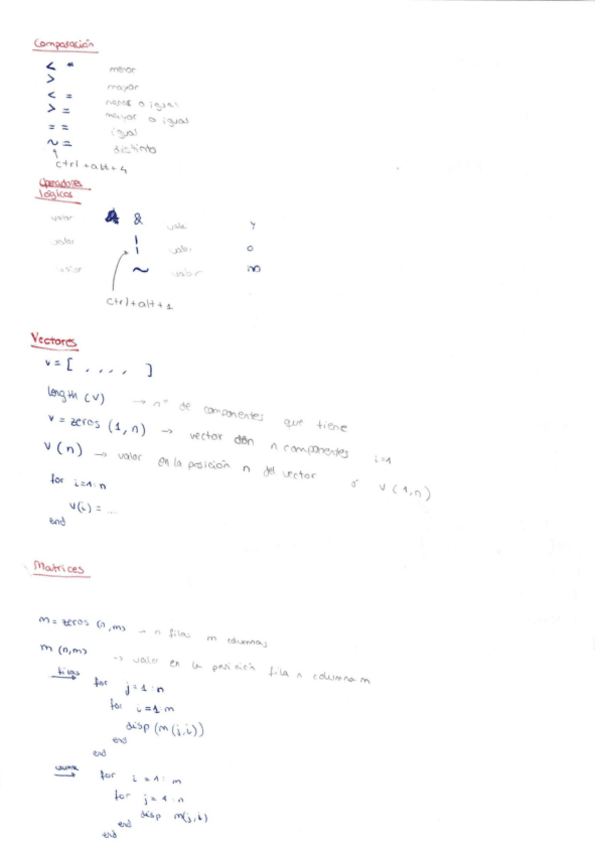 Comparación
< menor
> mayor
< = menor o igual
> = mayor o igual
= = igual
~ = distinto
ctrl + alt + 4
Operadores
lógicos
valor & valor y
valor | valor o
valor ~ valor no
ctrl + alt + 1
Vectores
v = [ , , , , ]
length (v) → nº de componentes que tiene
v = zeros (1, n) → vector con n componentes i=1
v (n) → valor en la posición n del vector ó v (1, n)
for i=1:n
v(i) = ...
end
Matrices
m = zeros (n,m) → n filas m columnas
m (n,m) → valor en la posición fila n columna m
filas for j = 1 : n
for i = 1 : m
disp (m(j,i))
end
end
for i = 1 : m
for j = 1 : n
disp m(j,i)
end
end